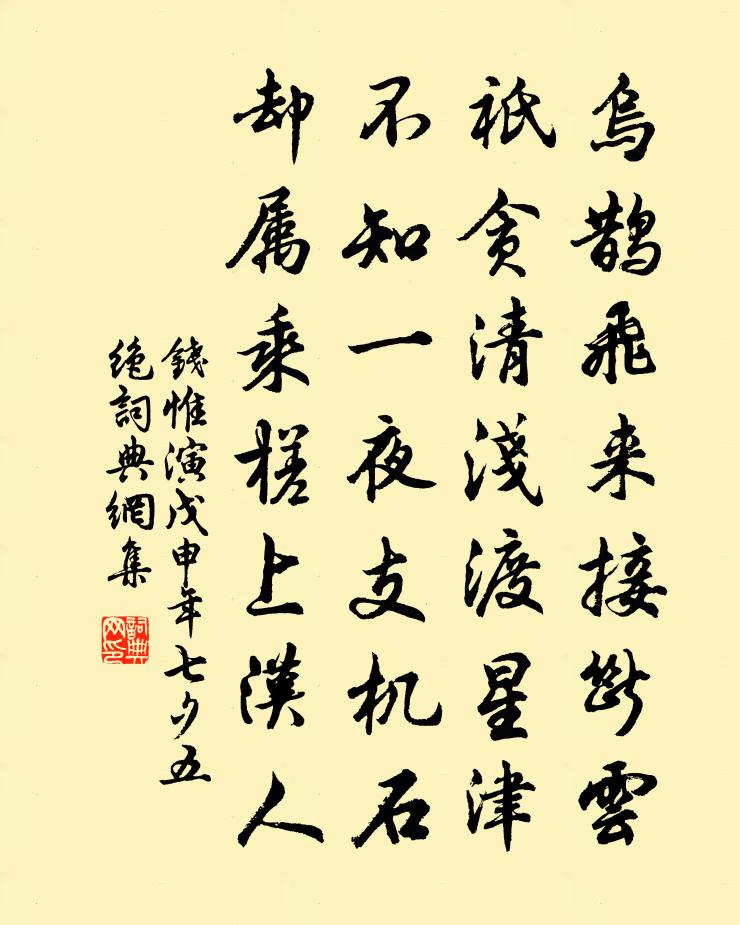 烏鵲飛来接斷雲
祇貪清淺渡星津
不知一夜支机石
却属乘槎上漢人
錢惟演戊申年七夕五
絶詞典網集
詞典
网印